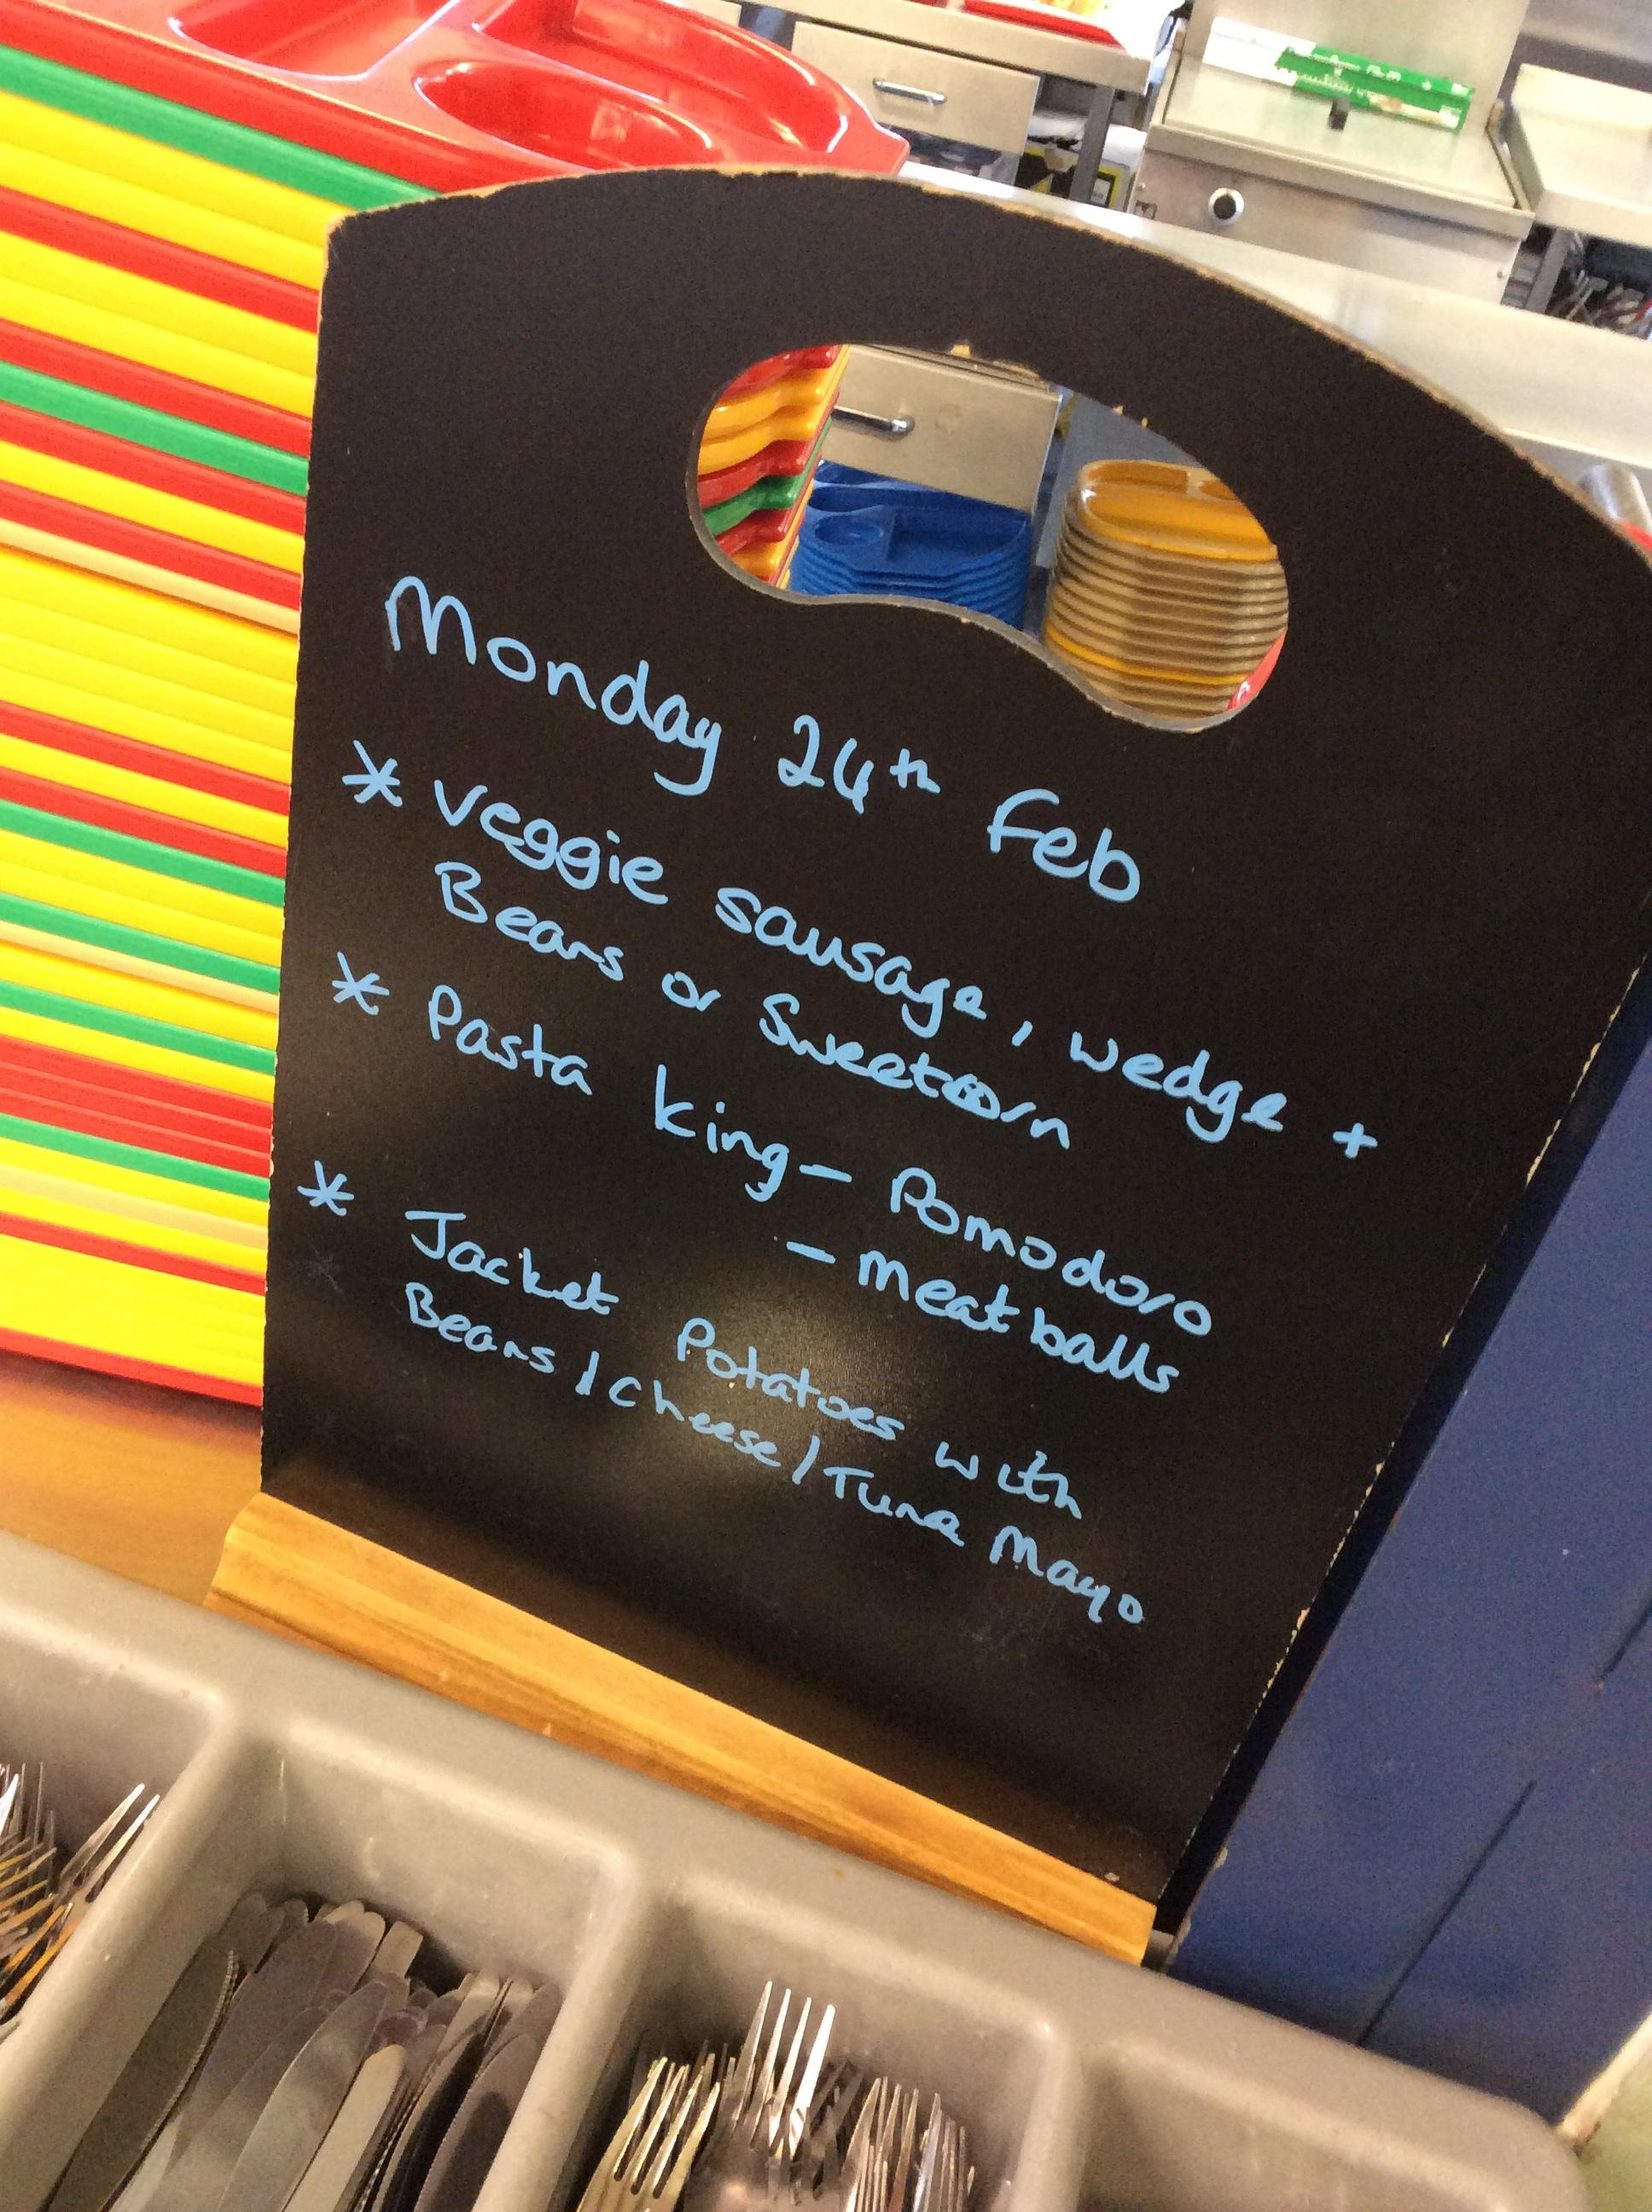 Monday 24th Feb
* Veggie sausage, wedge +
Beans or Sweetcorn
* Pasta king - Pomodoro
- meatballs
* Jacket Potatoes with
Beans / Cheese / Tuna Mayo